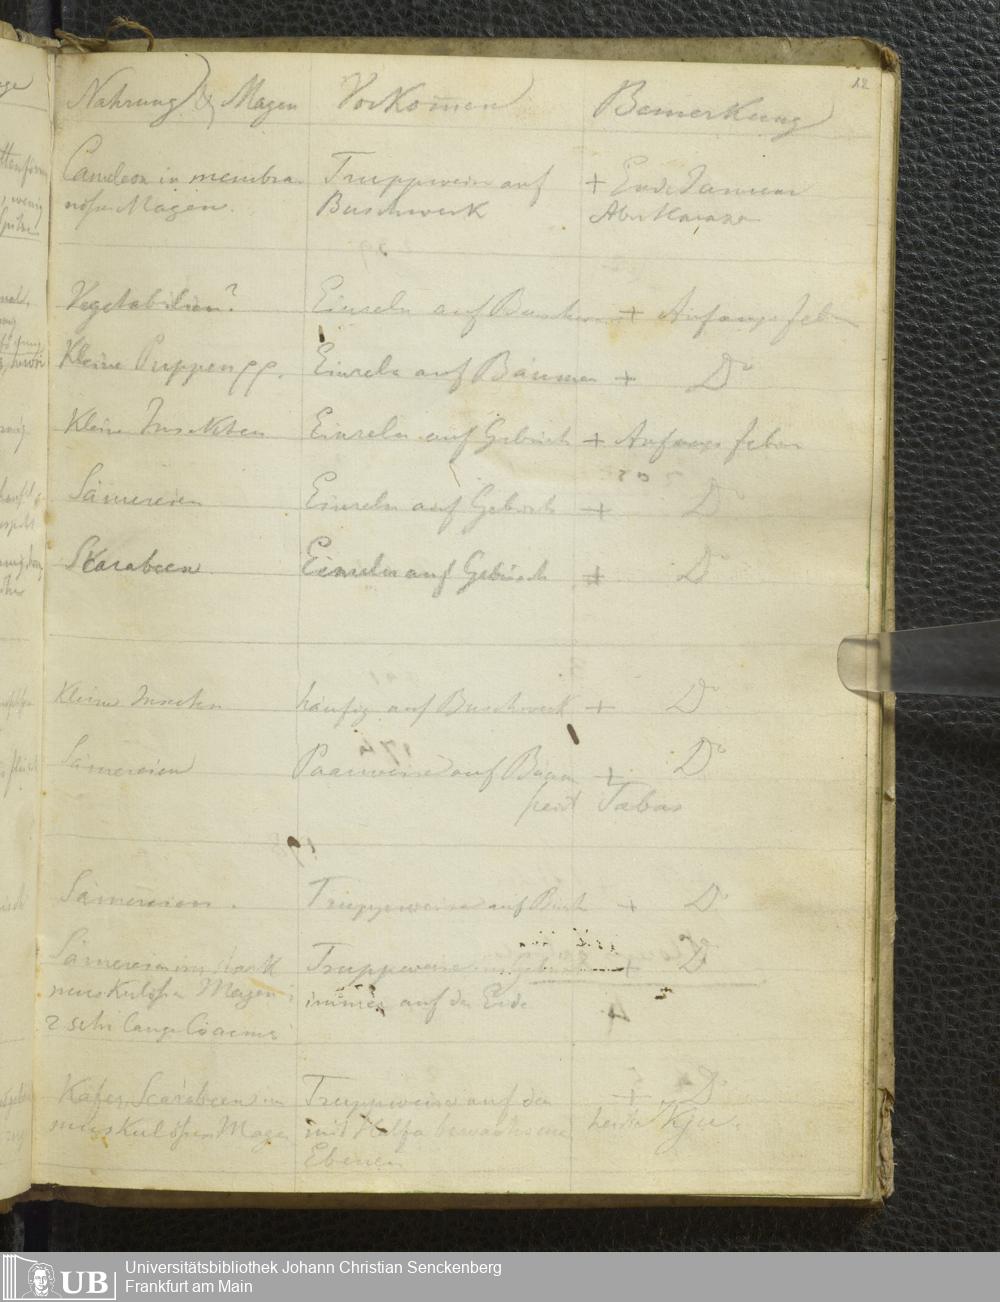 12
Nahrung & Magen Vorkom̅en Bemerkung
in membra- Truppweise auf + Ende Januar
nösen Magen. Buschwerk
Vegetabilien? Einzeln auf + Anfangs Febr
Kleine Puppen pp. Einzeln auf Bäumen + Do
Kleine Insekten Einzeln auf Gebüsch + Anfangs Febr
Sämereien Einzeln auf Gebüsch + Do
Skarabeen Einzeln auf Gebüsch + Do
Kleine Insekten häufig auf Buschwerk + Do
Sämereien Paarweise auf Bäum + Do
heist Tabas
Sämereien. Truppweise auf Büsch + Do
Sämereien in stark Truppweise + Do
muskulösen Magen, immer auf der Erde
2 sehr lange Coecums
Käfer, Scarabeen im Truppweise auf den + Do
muskulösen Magen mit Halfa bewachsenen
Ebenen
UB Universitätsbibliothek Johann Christian Senckenberg
Frankfurt am Main